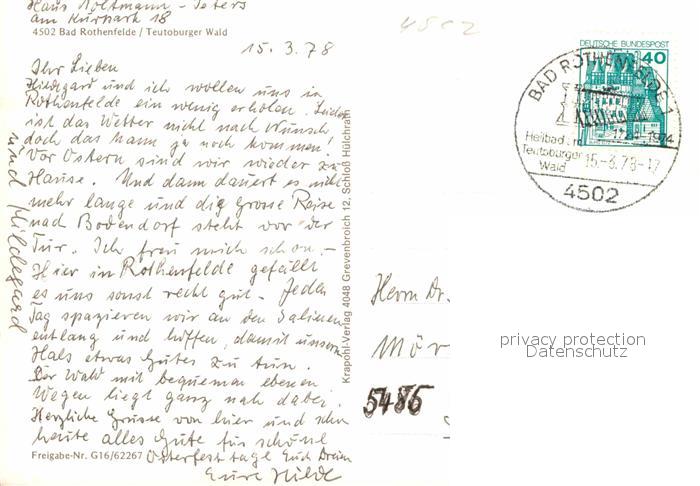 Haus Noltmann - Peters
am Kurpark 18
4502 Bad Rothenfelde / Teutoburger Wald
4502
15.3.78
Ihr Lieben
Hildegard und ich wollen uns in
Rothenfelde ein wenig erholen. Leider
ist das Wetter nicht nach Wunsch,
doch das kann ja noch kommen!
Vor Ostern sind wir wieder zu
Hause. Und dann dauert es nicht
mehr lange und die grosse Reise
nach Bodendorf steht vor der
Tür. Ich freu mich schon. -
Hier in Rothenfelde gefällt
es uns sonst recht gut. Jeden
Tag spazieren wir an den Salinen
entlang und hoffen, damit unserm
Hals etwas Gutes zu tun.
Der Wald mit bequemen ebenen
Wegen liegt ganz nah dabei.
Herzliche Grüsse von hier und schon
heute alles Gute für schöne
Osterfesttage Euch Dreien
Eure Hilde
und Hildegard
Freigabe-Nr. G16/62267
Krapohl-Verlag 4048 Grevenbroich 12, Schloß Hülchrath
DEUTSCHE BUNDESPOST
40
BAD ROTHENFELDE 1
1724-1974
Heilbad im
Teutoburger
Wald
15.-3.78-17
4502
Herrn Dr.
Mör
5486
privacy protection
Datenschutz